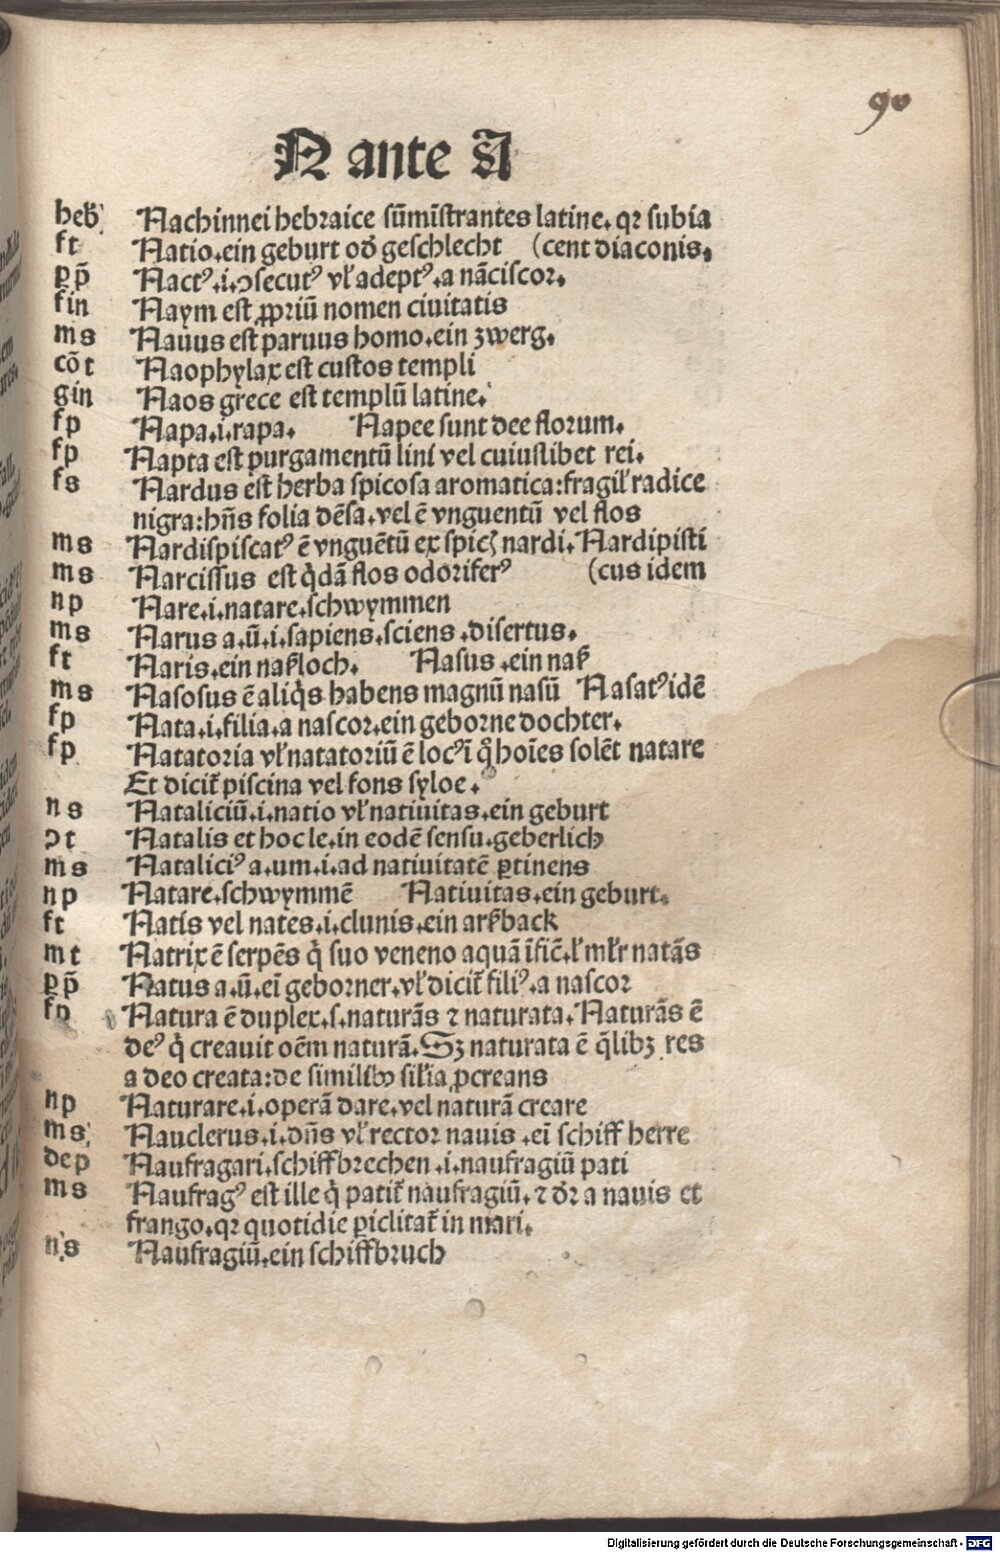 90
N ante A
heb̃ Nachinnei hebraice sũmĩstrantes latine. qꝛ subia
ft Natio.ein geburt od̃ geschlecht (cent diaconis.
ꝑp̃ Nactꝰ.i.ↄsecutꝰ vl̃ adeptꝰ.a nãciscor.
fin Naym est ꝓpriũ nomen ciuitatis
ms Nauus est paruus homo.ein zwerg.
cõt Naophylax est custos templi
gin Naos grece est templũ latine.
fp Napa.i.rapa. Napee sunt dee florum.
fp Napta est purgamentũ lini vel cuiuslibet rei.
fs Nardus est herba spicosa aromatica:fragil̃ radice
nigra:hñs folia dẽsa.vel ẽ vnguentũ vel flos
ms Nardispiscatꝰ ẽ vnguẽtũ ex spicꝭ nardi.Nardipisti
ms Narcissus est q̃dã flos odoriferꝰ (cus idem
np Nare.i.natare.schwymmen
ms Narus a.ũ.i.sapiens.sciens.disertus.
ft Naris.ein naßloch. Nasus.ein naß
ms Nasosus ẽ aliq̃s habens magnũ nasũ Nasatꝰ idẽ
fp Nata.i.filia.a nascor.ein geborne dochter.
fp Natatoria vl̃ natatoriũ ẽ locꝰ ĩ q̊ hoĩes solẽt natare
Et dicit̃ piscina vel fons syloe.
ns Nataliciũ.i.natio vl̃ natiuitas.ein geburt
ↄt Natalis et hoc le.in eodẽ sensu.geberlich
ms Nataliciꝰ a.um.i.ad natiuitatẽ ꝑtinens
np Natare.schwymmẽ Natiuitas.ein geburt.
ft Natis vel nates.i.clunis.ein arßback
mt Natrix ẽ serpẽs q̃ suo veneno aquã ĩfic̃.l̃ ml̃r natãs
ꝑp̃ Natus a.ũ.eĩ geborner.vl̃ dicit̃ filiꝰ.a nascor
fp Natura ẽ duplex.s.naturãs ⁊ naturata.Naturãs ẽ
deꝰ q̃ creauit oẽm naturã.Sꝫ naturata ẽ q̃libꝫ res
a deo creata:de similibꝰ sil̃ia ꝓcreans
np Naturare.i.operã dare.vel naturã creare
ms Nauclerus.i.dñs vl̃ rector nauis.eĩ schiff herre
dep Naufragari.schiffbrechen.i.naufragiũ pati
ms Naufragꝰ est ille q̃ patit̃ naufragiũ.⁊ dr̃ a nauis et
frango.qꝛ quotidie ꝑiclitat̃ in mari.
ns Naufragiũ.ein schiffbruch
Digitalisierung gefördert durch die Deutsche Forschungsgemeinschaft - DFG